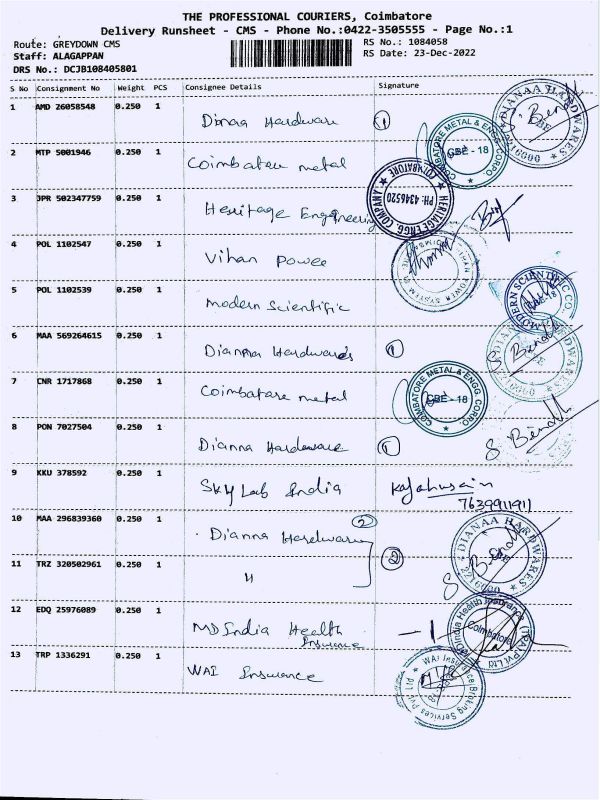 THE PROFESSIONAL COURIERS, Coimbatore
Delivery Runsheet - CMS - Phone No.:0422-3505555 - Page No.:1
Route: GREYDOWN CMS
RS No.: 1084058
Staff: ALAGAPPAN
RS Date: 23-Dec-2022
DRS No.: DCJB108405801
S No Consignment No Weight PCS Consignee Details Signature
1 AMD 26058548 0.250 1 Dinaa Hardware 1
DIANAA HARDWARES
2 MTP 5001946 0.250 1 Coimbatore metal
COIMBATORE METAL & ENGG. CORPO.
CBE - 18
3 JPR 502347759 0.250 1 Heritage Engineering
HERITAGE ENGG. COMPANY COIMBATORE
PH: 4346520
4 POL 1102547 0.250 1 Vihan Power
5 POL 1102539 0.250 1 Modern Scientific
MODERN SCIENTIFIC CO.
6 MAA 569264615 0.250 1 Dianna Hardwards 1
DIANAA HARDWARES
7 CNR 1717868 0.250 1 Coimbatore metal
COIMBATORE METAL & ENGG. CORPO.
CBE - 18
8 PON 7027504 0.250 1 Dianna Hardware 1
9 KKU 378592 0.250 1 Sky Lab India Kajahusain
7639911911
10 MAA 296839360 0.250 1 Dianna Hardware 2
DIANAA HARDWARES
11 TRZ 320502961 0.250 1 " 2
12 EDQ 25976089 0.250 1 MD India Health Insurance
MD India Health Insurance (TPA) Pvt Ltd
Coimbatore
13 TRP 1336291 0.250 1 WAI Insurance
WAI Insurance Broking Services Pvt Ltd